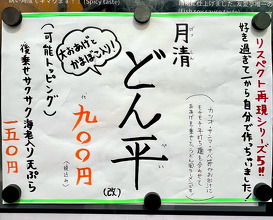 (Spicy taste)
リスペクト再現シリーズ5!!
好き過ぎて一から自分で作っちゃいました!
月清
どん平
(改)
大おあげと
かまぼこ入り!
九〇〇円
(税込み)
(可能トッピング)
後乗せサクサク海老入り天ぷら
一五〇円